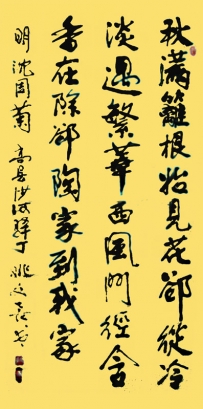 秋滿籬根始見花卻從冷
淡遇繁華西風門經含
香在除卻陶家到我家
明沈周菊 高县沙河驛丁